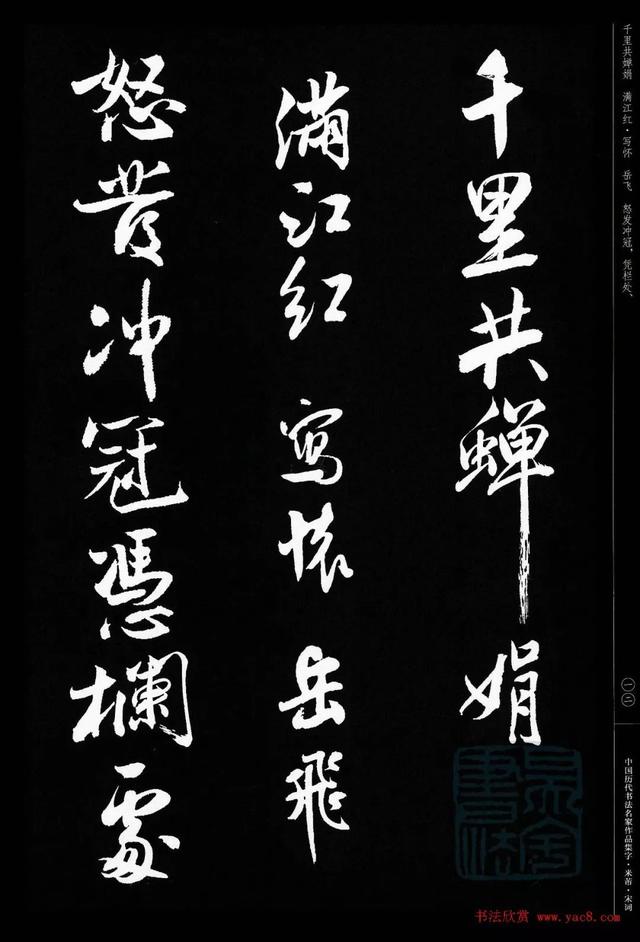 千里共蝉娟
滿江红 寫懷 岳飛
怒發冲冠憑欄處
千里共婵娟 满江红·写怀 岳飞 怒发冲冠，凭栏处、
一二
中国历代书法名家作品集字·米芾·宋词
书法欣赏 www.yac8.com